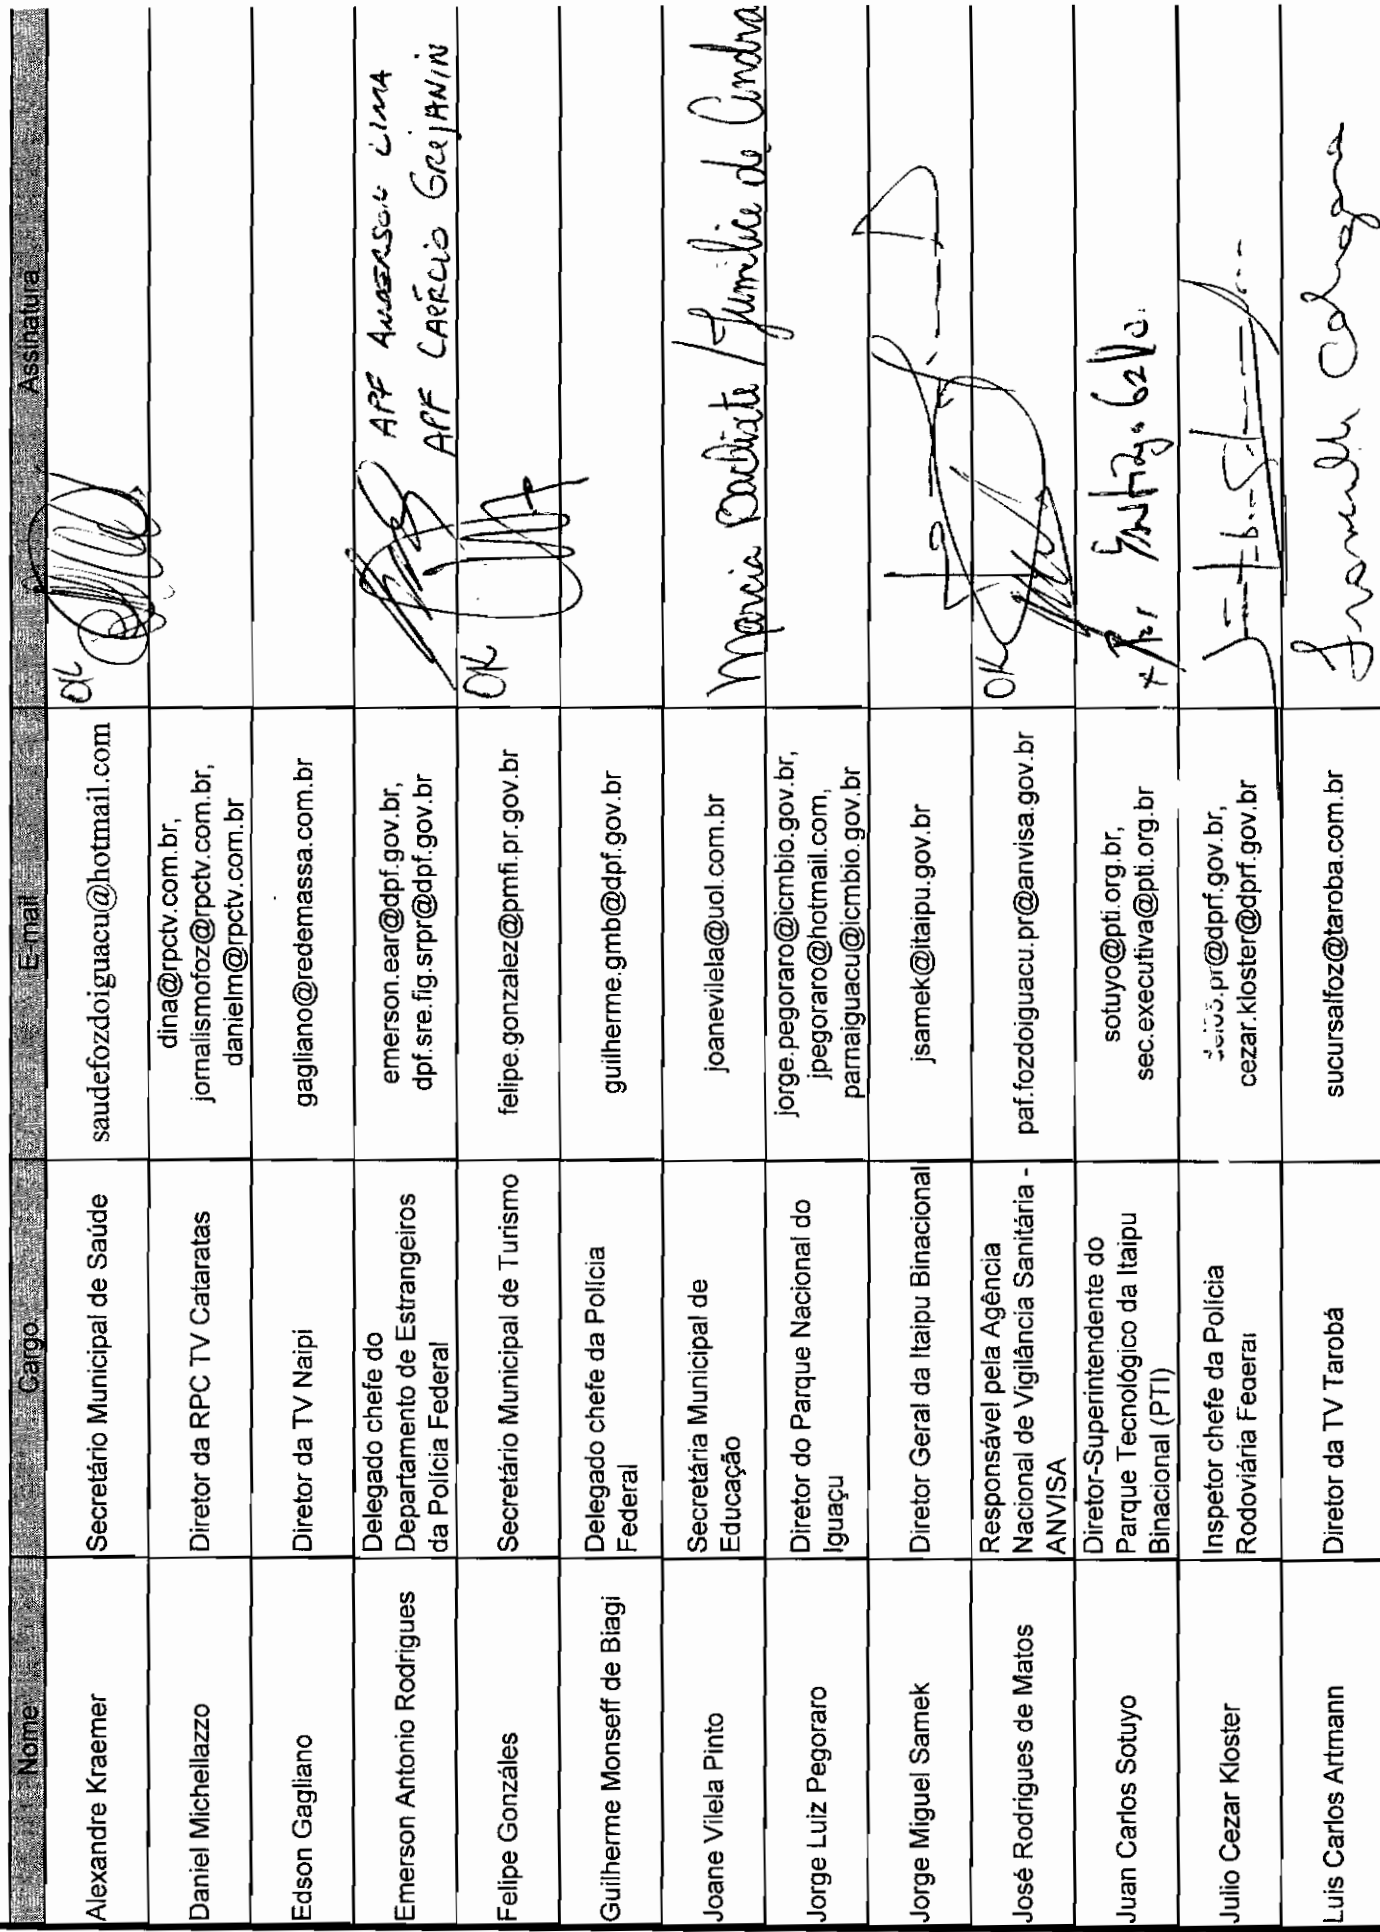 Nome Cargo E-mail Assinatura
Alexandre Kraemer Secretário Municipal de Saúde saudefozdoiguacu@hotmail.com OK
Daniel Michellazzo Diretor da RPC TV Cataratas dina@rpctv.com.br,
jornalismofoz@rpctv.com.br,
danielm@rpctv.com.br
Edson Gagliano Diretor da TV Naipi gagliano@redemassa.com.br
Emerson Antonio Rodrigues Delegado chefe do
Departamento de Estrangeiros
da Polícia Federal emerson.ear@dpf.gov.br,
dpf.sre.fig.srpr@dpf.gov.br APF ANDERSON LIMA
APF LAÉRCIO
Felipe Gonzáles Secretário Municipal de Turismo felipe.gonzalez@pmfi.pr.gov.br OK
Guilherme Monseff de Biagi Delegado chefe da Polícia
Federal guilherme.gmb@dpf.gov.br
Joane Vilela Pinto Secretária Municipal de
Educação joanevilela@uol.com.br Marcia Batiste / de
Jorge Luiz Pegoraro Diretor do Parque Nacional do
Iguaçu jorge.pegoraro@icmbio.gov.br,
jpegoraro@hotmail.com,
parnaiguacu@icmbio.gov.br
Jorge Miguel Samek Diretor Geral da Itaipu Binacional jsamek@itaipu.gov.br
José Rodrigues de Matos Responsável pela Agência
Nacional de Vigilância Sanitária -
ANVISA paf.fozdoiguacu.pr@anvisa.gov.br OK
Juan Carlos Sotuyo Diretor-Superintendente do
Parque Tecnológico da Itaipu
Binacional (PTI) sotuyo@pti.org.br,
sec.executiva@pti.org.br
Julio Cezar Kloster Inspetor chefe da Polícia
Rodoviária Federal cezar.kloster@dprf.gov.br
Luis Carlos Artmann Diretor da TV Tarobá sucursalfoz@taroba.com.br